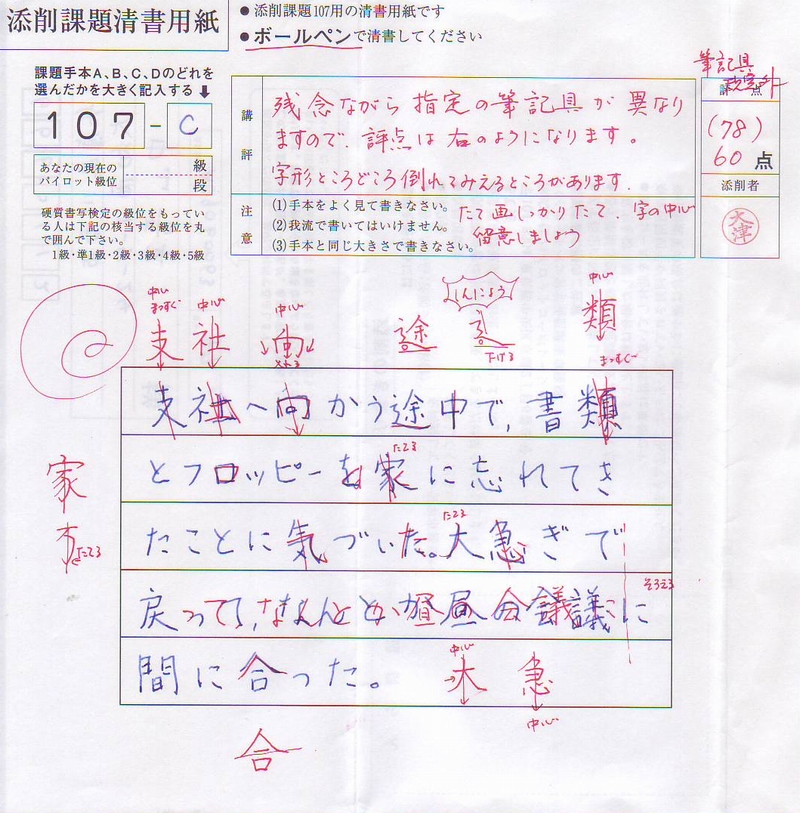 添削課題清書用紙
● 添削課題107用の清書用紙です
● ボールペンで清書してください
課題手本A、B、C、Dのどれを
選んだかを大きく記入する
107-C
あなたの現在の
パイロット級位
級
段
硬質書写検定の級位をもってい
る人は下記の該当する級位を丸
で囲んで下さい。
1級・準1級・2級・3級・4級・5級
講評
残念ながら指定の筆記具が異なり
ますので、評点は右のようになります。
字形ところどころ倒れてみえるところがあります.
注意
(1)手本をよく見て書きなさい。
(2)我流で書いてはいけません。
(3)手本と同じ大きさで書きなさい。
たて画しっかりたて、字の中心
留意しましょう
筆記具
評点
(78)
60点
添削者
大津
中心
まっすぐ
支
中心
社
中心
向
途
しんにょう
下げる
中心
類
まっすぐ
支社へ向かう途中で,書類
とフロッピーを家に忘れてき
たてる
たことに気づいた。大急ぎで
たてる
戻って,なんとか昼会議に
そろえる
間に合った。
家
たてる
中心
大
急
中心
合